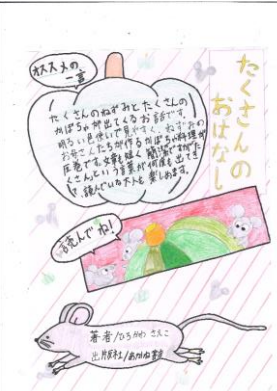 たくさんの
おはなし
オススメの
一言
たくさんのねずみとたくさんの
かぼちゃが出てくるお話です。
明るい色使いで見やすく、ねずみの
お母さんたちが作るかぼちゃ料理が
圧巻です。文章も短く、簡潔ですが「た
くさん」という言葉が何度も出てき
て、読んでいる大人も楽しめます。
読んでね!
著者/ひろかわ さえこ
出版社/あかね書房